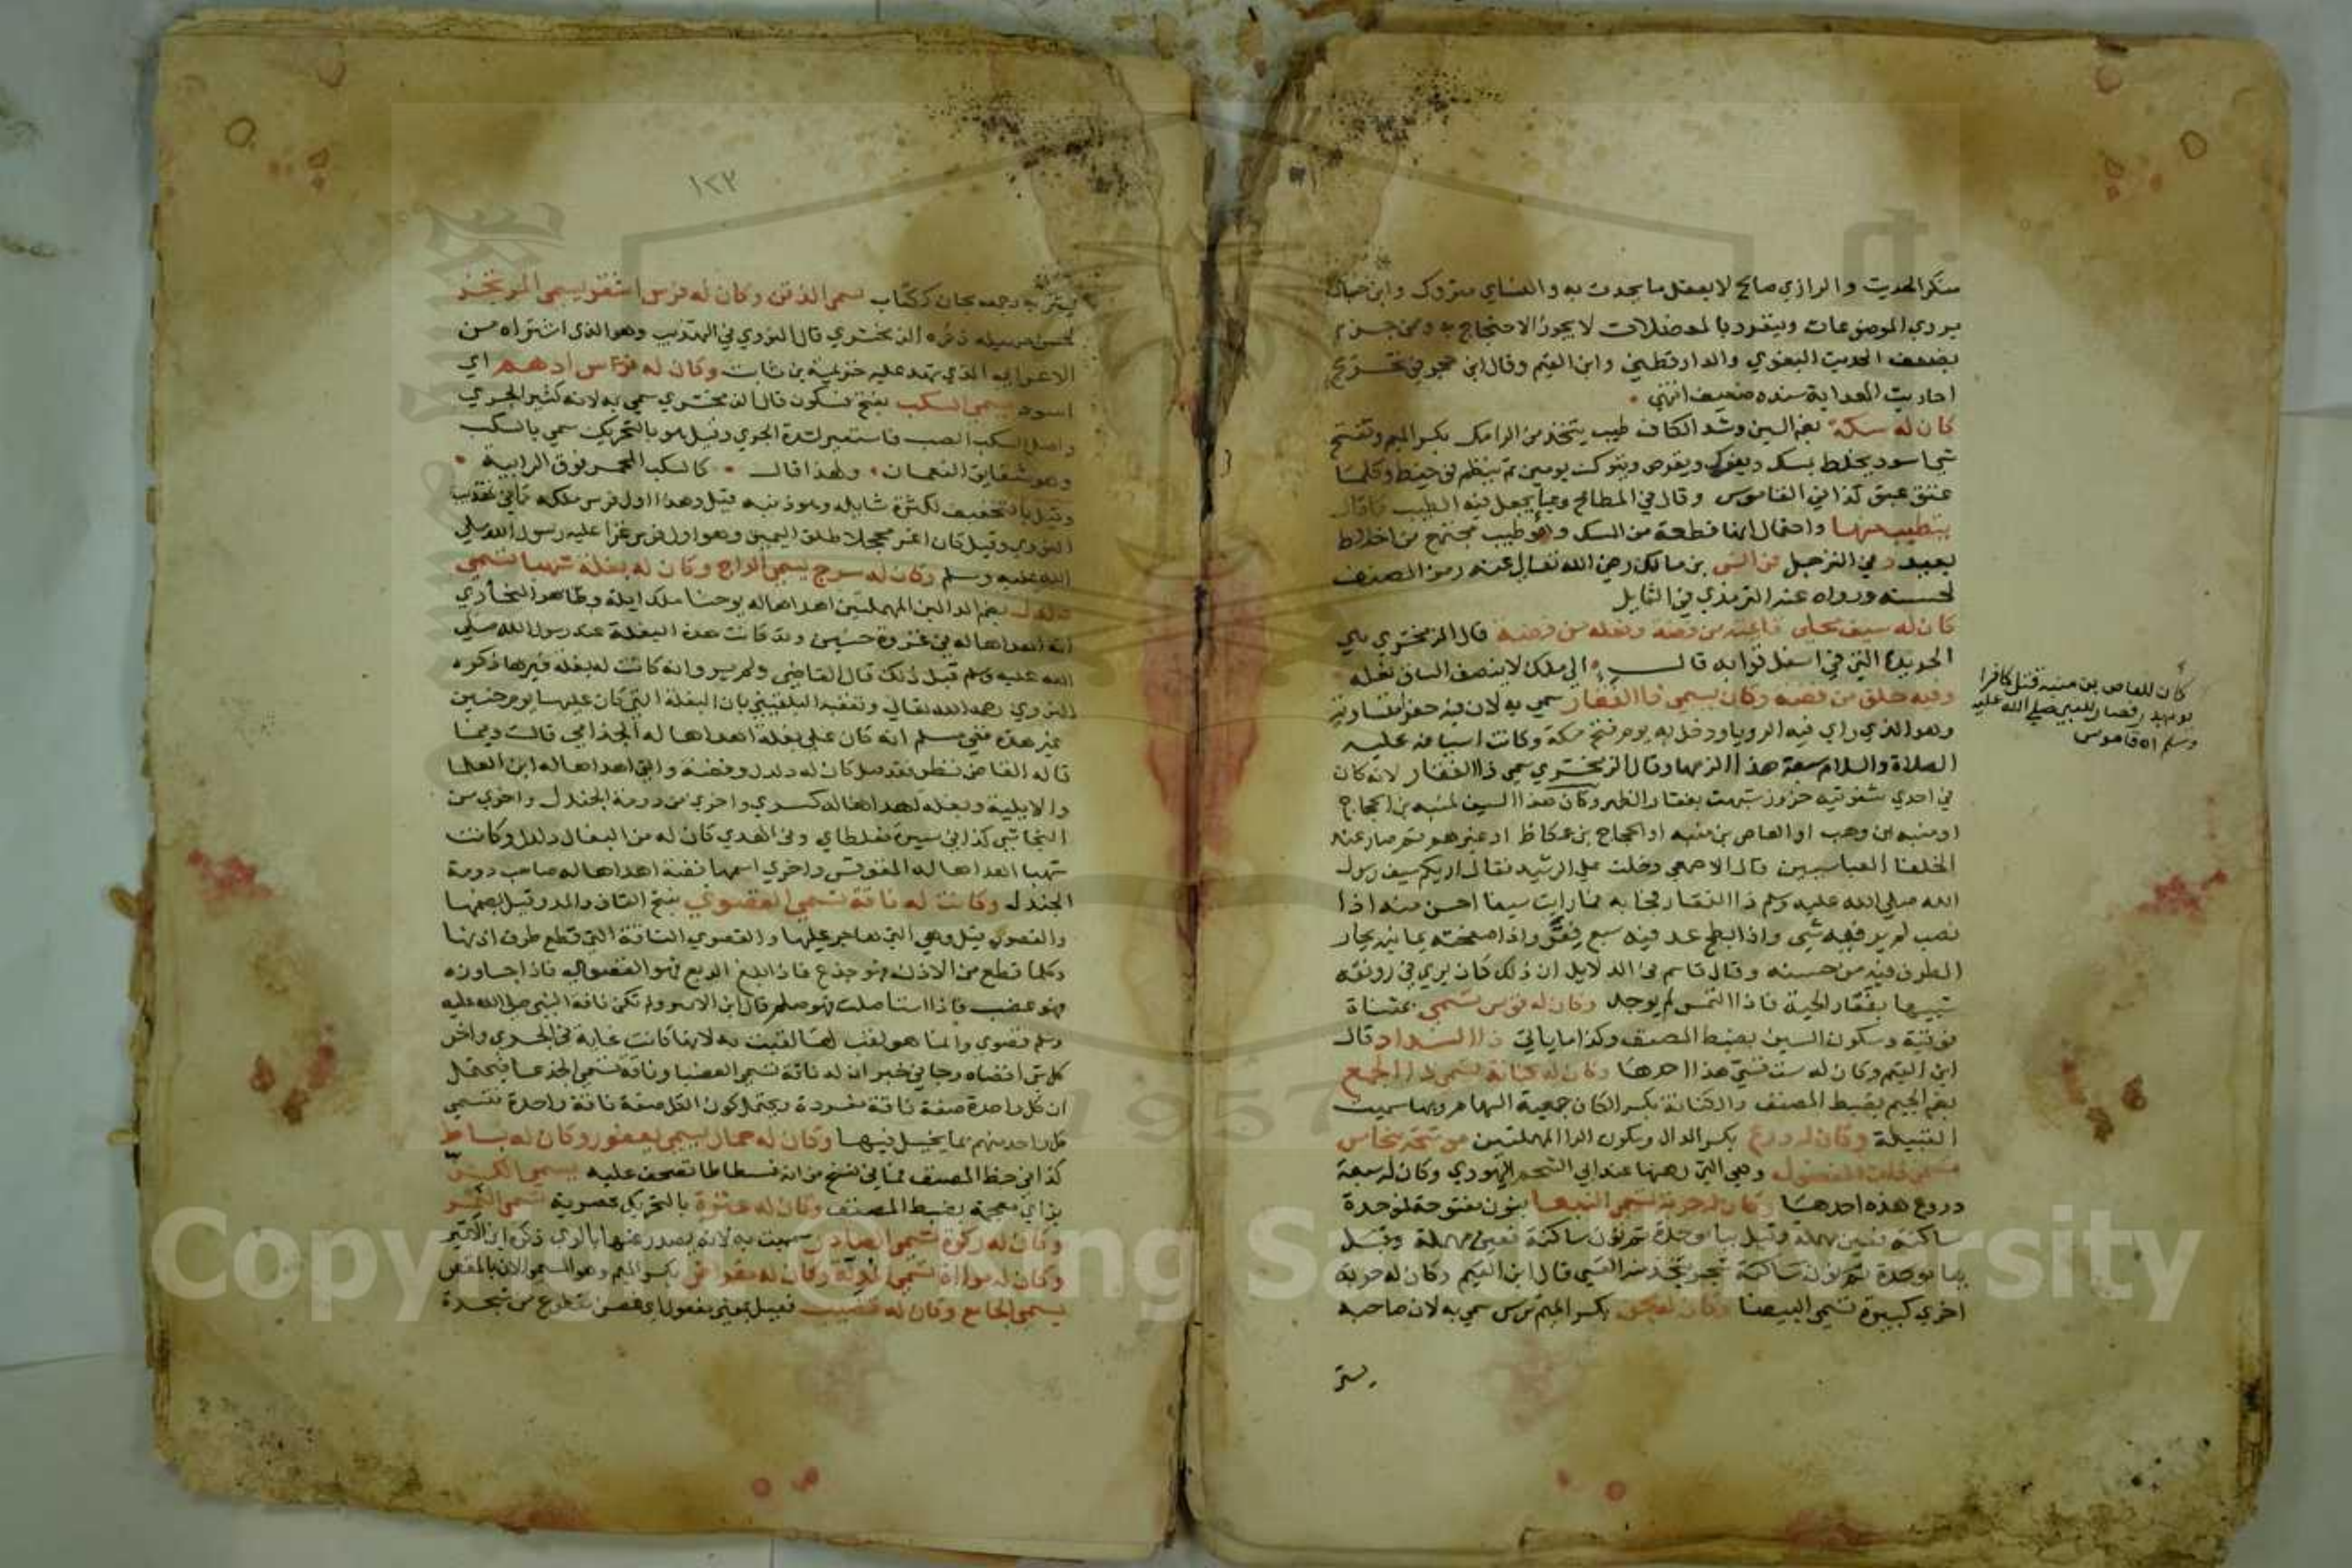 منكر الحديث والرازي صالح لا يعقل ما يحدث به والنساي متروك وابن حبان
يروي الموضوعات وينفرد بالمعضلات لا يجوز الاحتجاج به وممن جزم
بضعف الحديث البغوي والدارقطني وابن القيم وقال ابن حجر في تخريج
احاديث الهداية سنده ضعيف انتهى
كان له سكة بضم السين وشد الكاف طيب يتخذ من الرامك بكسر الميم وتفتح
شي اسود يخلط بمسك ويفرك ويقرص ويترك يومين ثم ينظم في خيط وكلما
عتق عبق كذا في القاموس وقال في المطالع وعا يجعل فيه الطيب
يتطيب منها واحتمال انها قطعة من السك وهو طيب مجتمع من اخلاط
بعيد د في الترجل عن انس بن مالك رضي الله تعالى عنه رمز المصنف
لحسنه ورواه عنه الترمذي في الشمايل
كان له سيف محلى قائمته من فضة ونعله من فضة قال الزمخشري هي
الحديدة التي في اسفل قرابه قال الى ملك لا ينصف الساق نعله
وفيه حلق من فضة وكان يسمى ذا الفقار سمي به لان فيه حفرا متساوية
وهو الذي راي فيه الرويا ودخل به يوم فتح مكة وكانت اسيافه عليه
الصلاة والسلام سبعة هذا الزمها وقال الزمخشري سمي ذا الفقار لانه كان
في احدى شفرتيه حزوز شبهت بفقار الظهر وكان هذا السيف لمنبه بن الحجاج
او منبه بن وهب او العاص بن منبه او الحجاج بن عكاظ او غيرهم ثم صار عند
الخلفا العباسيين قال الاصمعي دخلت على الرشيد فقال اريكم سيف رسول
الله صلى الله عليه وسلم ذا الفقار فجا به فما رايت سيفا احسن منه اذا
نصب لم ير فيه شي واذا بطح عد فيه سبع فقر واذا صفيحته يمانية يحار
الطرف فيه من حسنه وقال قاسم في الدلايل ان ذلك كان يرى في رونقه
شبيها بفقار الحية فاذا التمس لم يوجد وكان له قوس تسمى بمثناة
فوقية وسكون السين بضبط المصنف وكذا ما ياتي ذا السداد قال
ابن القيم وكان له ست قسي هذا احدها وكان له كنانة تسمى ذا الجمع
بضم الجيم بضبط المصنف والكنانة بكسر الكاف جعبة السهام وبها سميت
القبيلة وكان له درع بكسر الدال وسكون الرا المهملتين موشحة بنحاس
تسمى ذات الفضول وهي التي رهنها عند ابي الشحم اليهودي وكان له سبعة
دروع هذه احدها وكان له حربة تسمى النبعا بنون مفتوحة فموحدة
ساكنة فعين مهملة وقيل بباء موحدة ثم نون ساكنة فعين مهملة وقيل
بيا موحدة ثم نون ساكنة شجر يتخذ منه القسي قال ابن القيم وكان له حربة
اخرى كبيرة تسمى البيضا وكان له مجن بكسر الميم ترس سمي به لان صاحبه
يستتر
كان للعاص بن منبه قتل كافرا
يوم بدر فصار للنبي صلى الله عليه
وسلم اه قاموس
١٢٢
يستتر به وجمعه مجان ككتاب يسمى الذقن وكان له فرس اشقر يسمى المرتجز
لحسن صهيله ذكره الزمخشري قال النووي في التهذيب وهو الذي اشتراه من
الاعرابي الذي شهد عليه خزيمة بن ثابت وكان له فرس ادهم اي
اسود يسمى السكب بفتح فسكون قال الزمخشري سمي به لانه كثير الجري
واصل السكب الصب فاستعير لشدة الجري وقيل هو بالتحريك سمي بالسكب
وهو شقايق النعمان ولهذا قال كالسكب المحمر فوق الرابية
وقيل بالتخفيف لكثرة شايله وهو ذنبه قيل وهذا اول فرس ملكه قاله في تهذيب
النووي وقيل كان اغر محجلا طلق اليمين وهو اول فرس غزا عليه رسول الله صلى
الله عليه وسلم وكان له سرج يسمى الداج وكان له بغلة شهبا تسمى
دلدل بضم الدالين المهملتين اهداها له يوحنا ملك ايلة وظاهر البخاري
انه اهداها له في غزوة حنين وقد كانت هذه البغلة عند رسول الله صلى
الله عليه وسلم قبل ذلك قال القاضي ولم يرو انه كانت له بغلة غيرها ذكره
النووي رحمه الله تعالى وتعقبه البلقيني بان البغلة التي كان عليها يوم حنين
غير هذه ففي مسلم انه كان على بغلة اهداها له الجذامي قالت وفيما
قاله القاضي نظر فقد قيل كان له دلدل وفضة والتي اهداها له ابن العلما
والايلية وبغلة اهداها له كسرى واخرى من دومة الجندل واخرى من
النجاشي كذا في سيرة مغلطاي وفي الهدي كان له من البغال دلدل وكانت
شهبا اهداها له المقوقس واخرى اسمها فضة اهداها له صاحب دومة
الجندل وكانت له ناقة تسمى القصوى بفتح القاف والمد وقيل بضمها
والقصور قيل وهي التي هاجر عليها والقصوى الناقة التي قطع طرف اذنها
وكلما قطع من الاذن فهو جذع فاذا بلغ الربع فهو القصوى فاذا جاوزه
فهو عضب فاذا استاصلت فهو صلم قال ابن الاثير ولم تكن ناقة النبي صلى الله عليه
وسلم قصوى وانما هو لقب لها لقبت به لانها كانت غاية في الجري واخر
كل شي اقصاه وجا في خبر ان له ناقة تسمى العضبا وناقة تسمى الجذعا فيحتمل
ان كل واحدة صفة ناقة مفردة ويحتمل كون الكل صفة ناقة واحدة فتسمى
كل واحد منهم بما يخيل فيها وكان له حمار يسمى يعفور وكان له بساط
كذا في خط المصنف فما في نسخ من انه فسطاطا تصحف عليه يسمى الكز
بزاي معجمة بضبط المصنف وكان له عنزة بالتحريك عصرية تسمى النمر
وكان له ركوة تسمى الصادر سميت به لانه يصدر عنها بالري ذكره ابن الاثير
وكان له مراة تسمى المدلة وكان له مقراض بكسر الميم وهو المسمى الان بالمقص
يسمى الجامع وكان له قضيب فعيل بمعنى مفعول اي غصن مقطوع من شجرة